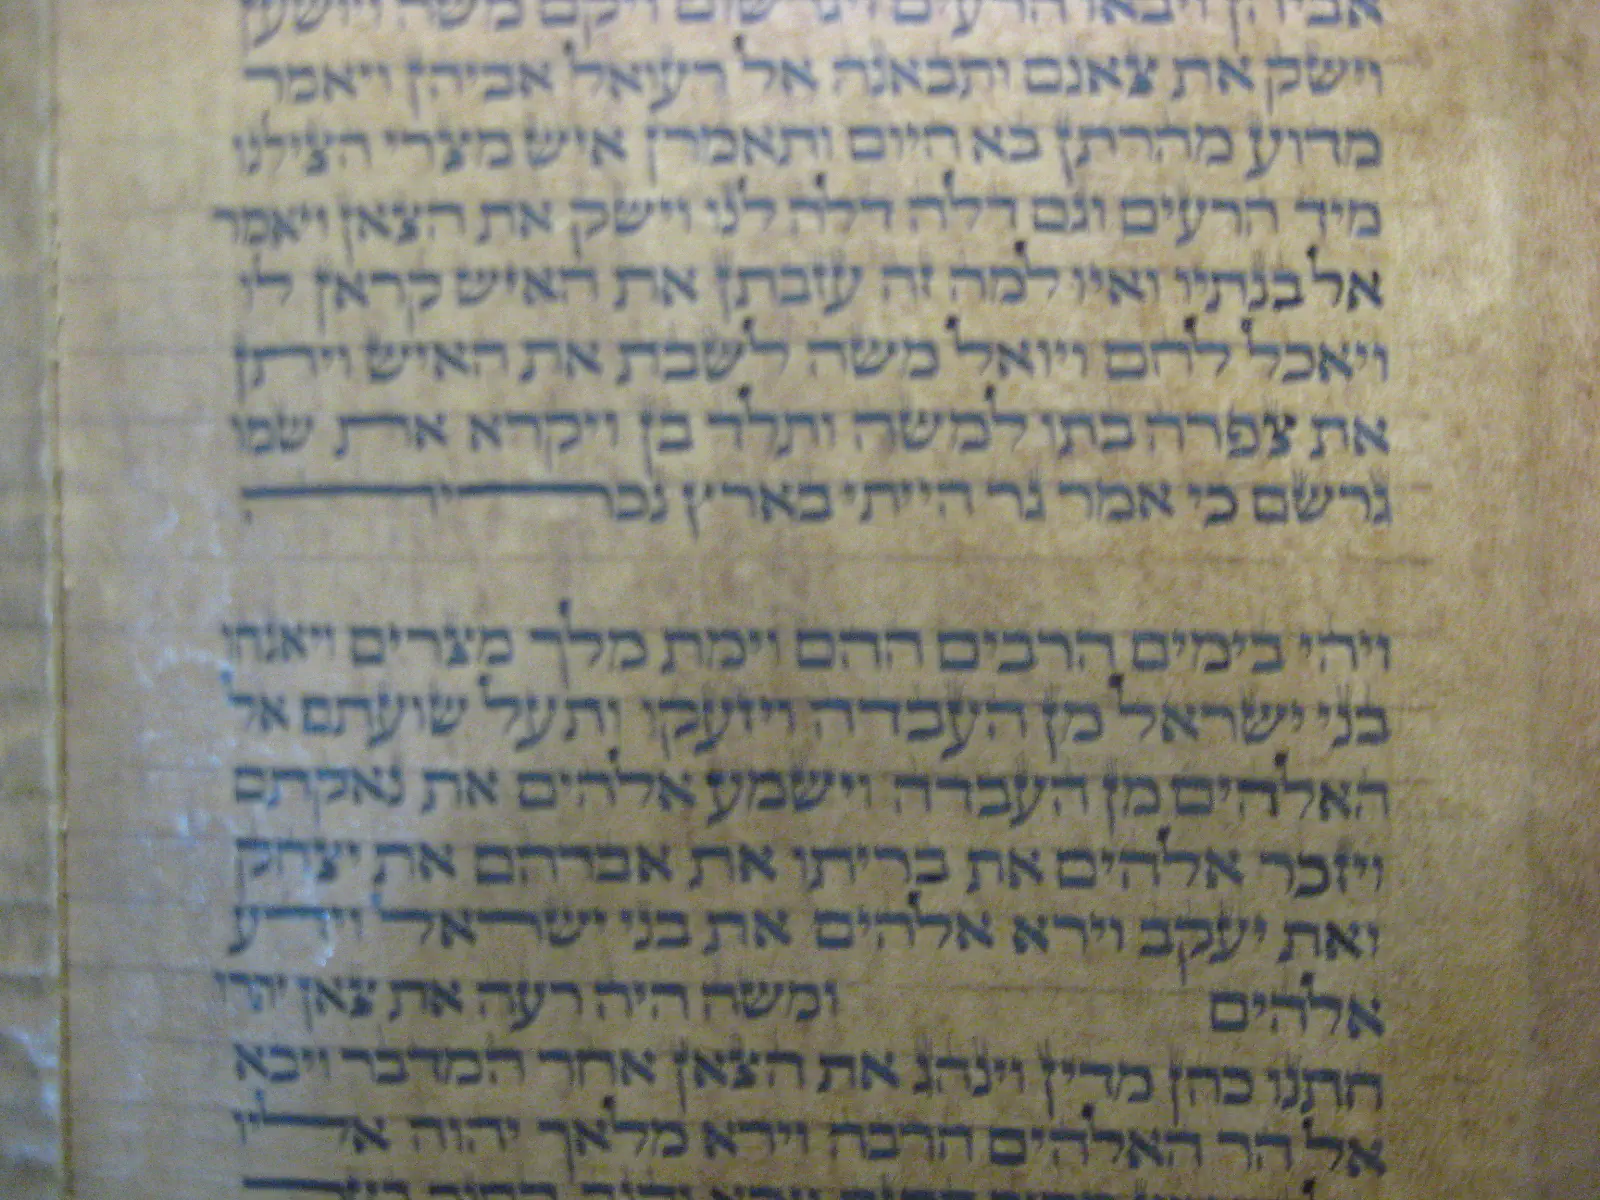 אביהן ויבאו הרעים ויגרשום ויקם משה ויושען
וישק את צאנם ותבאנה אל רעואל אביהן ויאמר
מדוע מהרתן בא היום ותאמרן איש מצרי הצילנו
מיד הרעים וגם דלה דלה לנו וישק את הצאן ויאמר
אל בנתיו ואיו למה זה עזבתן את האיש קראן לו
ויאכל לחם ויואל משה לשבת את האיש ויתן
את צפרה בתו למשה ותלד בן ויקרא את שמו
גרשם כי אמר גר הייתי בארץ נכריה
ויהי בימים הרבים ההם וימת מלך מצרים ויאנחו
בני ישראל מן העבדה ויזעקו ותעל שועתם אל
האלהים מן העבדה וישמע אלהים את נאקתם
ויזכר אלהים את בריתו את אברהם את יצחק
ואת יעקב וירא אלהים את בני ישראל וידע
אלהים ומשה היה רעה את צאן יתרו
חתנו כהן מדין וינהג את הצאן אחר המדבר ויבא
אל הר האלהים חרבה וירא מלאך יהוה אליו